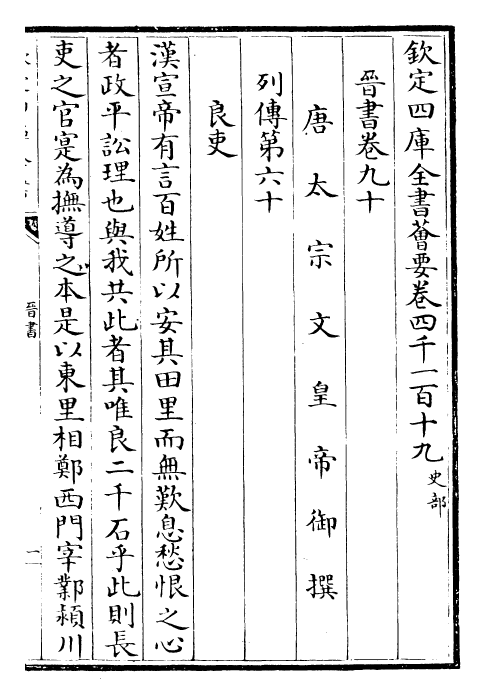 欽定四庫全書薈要卷四千一百十九史部
晉書卷九十
唐太宗文皇帝御撰
列傳第六十
良吏
漢宣帝有言百姓所以安其田里而無歎息愁恨之心
者政平訟理也與我共此者其唯良二千石乎此則長
吏之官寔為撫導之本是以東里相鄭西門宰鄴潁川
晉書
一